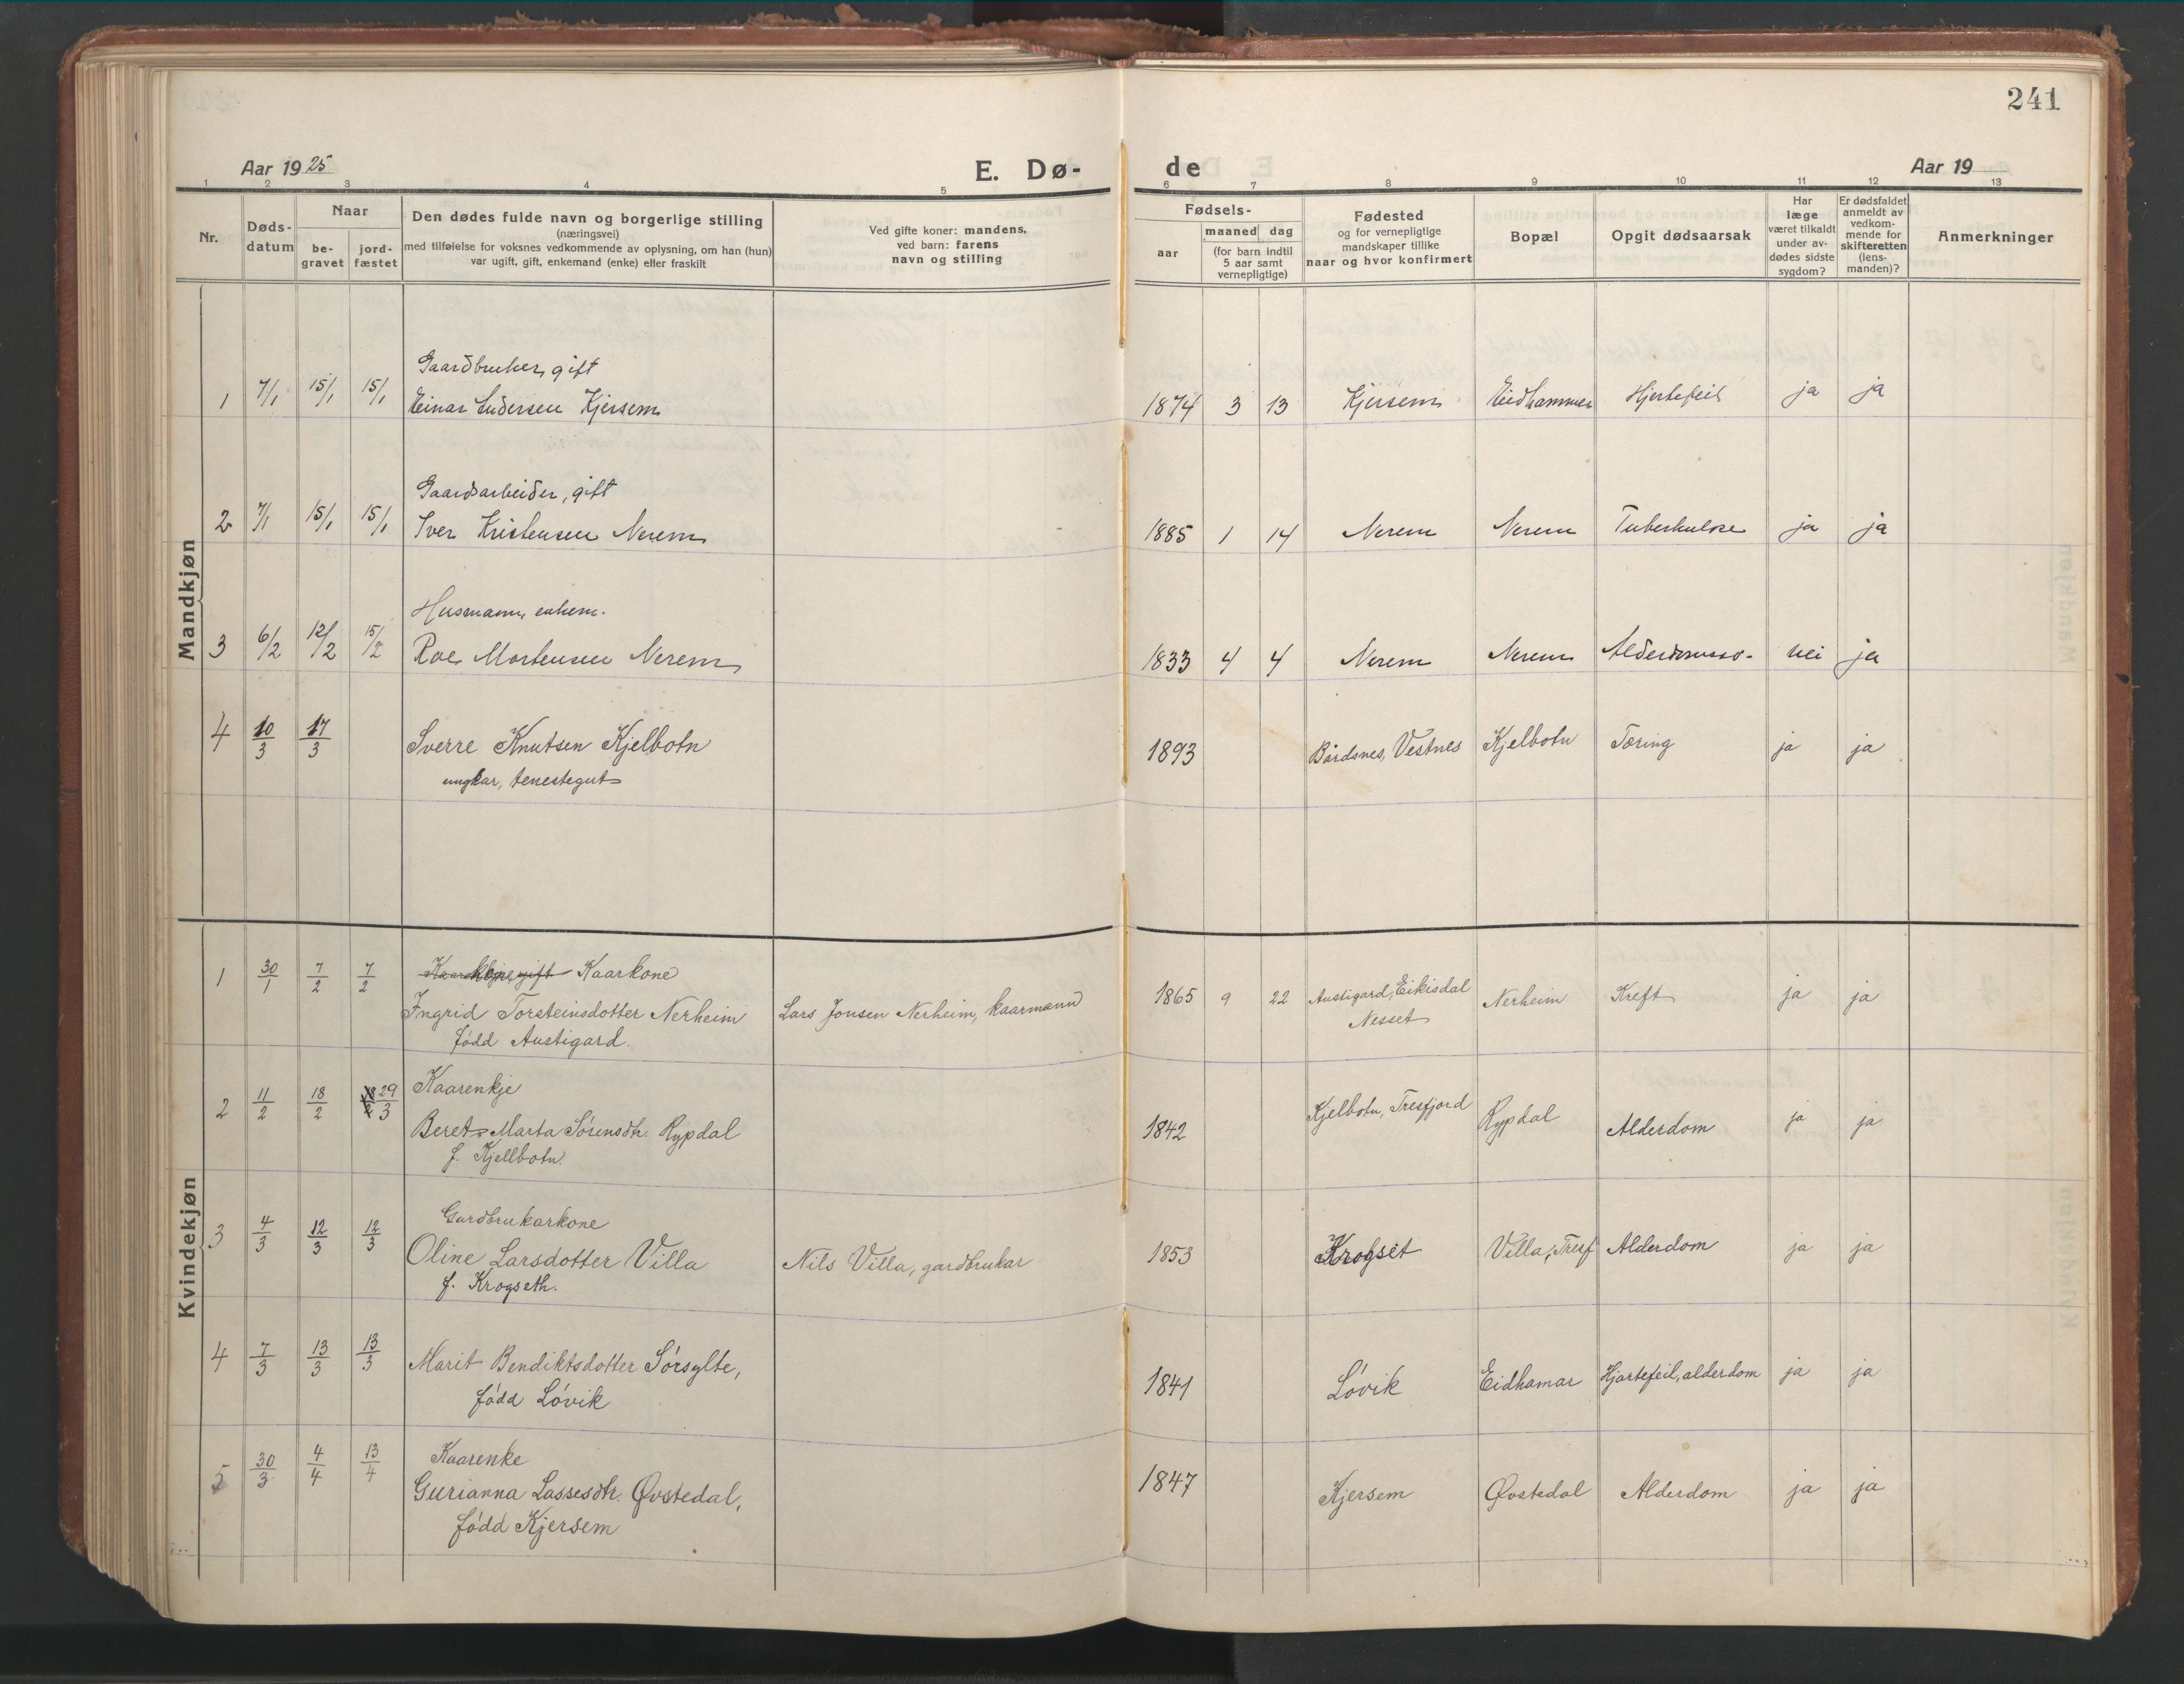 241
Aar 1925
E. Dø-
de
Aar 19
1 2 3 4 5 6 7 8 9 10 11 12 13
Nr.
Døds-
datum
Naar
be-
gravet
jord-
fæstet
Den dødes fulde navn og borgerlige stilling
(næringsvei)
med tilføielse for voksnes vedkommende av oplysning, om han (hun)
var ugift, gift, enkemand (enke) eller fraskilt
Ved gifte koner: mandens,
ved barn: farens
navn og stilling
Fødsels-
aar
maaned dag
(for barn indtil
5 aar samt
vernepligtige)
Fødested
og for vernepligtige
mandskaper tillike
naar og hvor konfirmert
Bopæl
Opgit dødsaarsak
Har
læge
været tilkaldt
under av-
dødes sidste
sygdom?
Er dødsfaldet
anmeldt av
vedkom-
mende for
skifteretten
(lens-
manden)?
Anmerkninger
Mandkjøn
Gaardbruker, gift
1 7/1 15/1 15/1 Einar Endersen Kjersem 1874 3 13 Kjersem Eidhammer Hjertefeil ja ja
Gaardsarbeider, gift
2 7/1 15/1 15/1 Iver Kristensen Nerem 1885 1 14 Nerem Nerem Tuberkulose ja ja
Husmann, enkem.
3 6/2 12/2 15/2 Roe Mortensen Nerem 1833 4 4 Nerem Nerem nei ja
4 10/3 17/3 Sverre Knutsen Kjelbotn 1893 Bårdsnes, Vestnes Kjelbotn Tæring ja ja
ungkar, tenestegut
Kvindekjøn
1 30/1 7/2 7/2 Kaarkone
Ingrid Torsteinsdotter Nerheim Lars Jonsen Nerheim, kaarmann 1865 9 22 Austigard, Eikisdal Nerheim Kreft ja ja
Nesset
född Austigard.
Kaarenkje
2 11/2 18/2 29/3 Beret Marta Sörensdtr. Rypdal 1842 Kjelbotn, Tresfjord Rypdal Alderdom ja ja
f. Kjellbotn.
Gardbrukarkone
3 4/3 12/3 12/3 Oline Larsdotter Villa Nils Villa, gardbrukar 1853 Krogset Villa, Tresf Alderdom ja ja
f. Krogseth.
4 7/3 13/3 13/3 Marit Bendiktsdotter Sörsylte, 1841 Lövik Eidhamar Hjartefeil, alderdom ja ja
född Lövik
Kaarenke
5 30/3 4/4 13/4 Gurianna Lassesdtr. Øvstedal, 1847 Kjersem Øvstedal Alderdom ja ja
född Kjersem